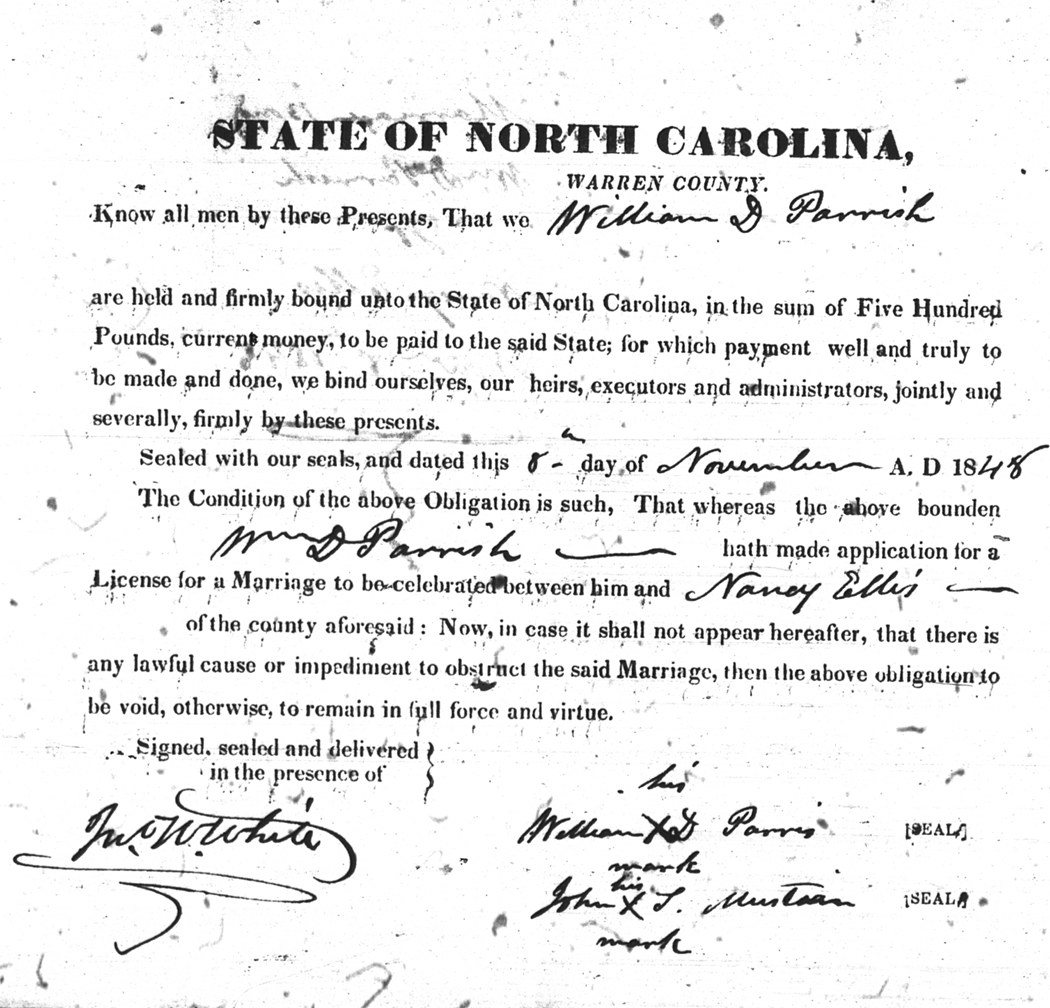 STATE OF NORTH CAROLINA,
WARREN COUNTY.
Know all men by these Presents, That we William D Parrish
are held and firmly bound unto the State of North Carolina, in the sum of Five Hundred
Pounds, current money, to be paid to the said State; for which payment well and truly to
be made and done, we bind ourselves, our heirs, executors and administrators, jointly and
severally, firmly by these presents.
Sealed with our seals, and dated this 8 day of November A. D 1848
The Condition of the above Obligation is such, That whereas the above bounden
Wm D Parrish hath made application for a
License for a Marriage to be celebrated between him and Nancy Ellis
of the county aforesaid: Now, in case it shall not appear hereafter, that there is
any lawful cause or impediment to obstruct the said Marriage, then the above obligation to
be void, otherwise, to remain in full force and virtue.
Signed, sealed and delivered }
in the presence of
his
Jno. W. White William X D Parris [SEAL]
mark
his
John X T. Mustain [SEAL]
mark